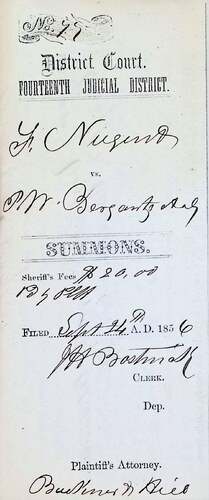 No. 99
District Court.
FOURTEENTH JUDICIAL DISTRICT.
F. Nugent
vs.
P. W. Bergantz et al
SUMMONS.
Sheriff's Fees $20,00
Pd by Plff
FILED Sept 24th A. D. 1856
J H Bostwick
CLERK.
Dep.
Plaintiff's Attorney.
Buckner & Hill